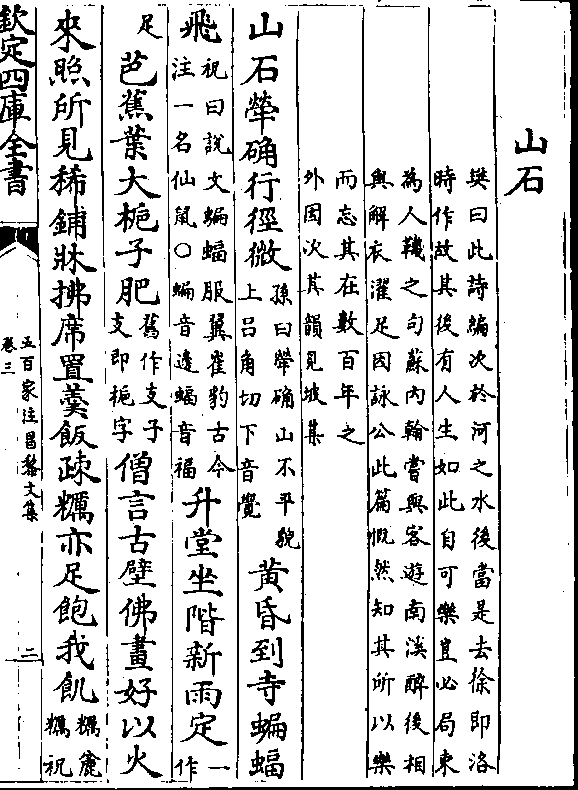 山石
樊曰此詩編次於河之水後當是去徐即洛
時作故其後有人生如此自可樂豈必局束
為人鞿之句蘇内翰嘗與客遊南溪醉後相
與解衣濯足因詠公此篇慨然知其所以樂
而忘其在數百年之
外因次其韻見坡集
山石犖确行徑微
孫曰犖确山不平貌
上吕角切下音覺
黄昏到寺蝙蝠
飛
祝曰説文蝙蝠服翼崔豹古今
注一名仙鼠○蝙音邊蝠音福
升堂坐階新雨定
一
作
足
芭蕉葉大梔子肥
舊作支子
支即梔字
僧言古壁佛畫好以火
來照所見稀鋪牀拂席置羹飯疎糲亦足飽我飢
糲麄
糲祝
欽定四庫全書
五百家注昌黎文集
卷三
二